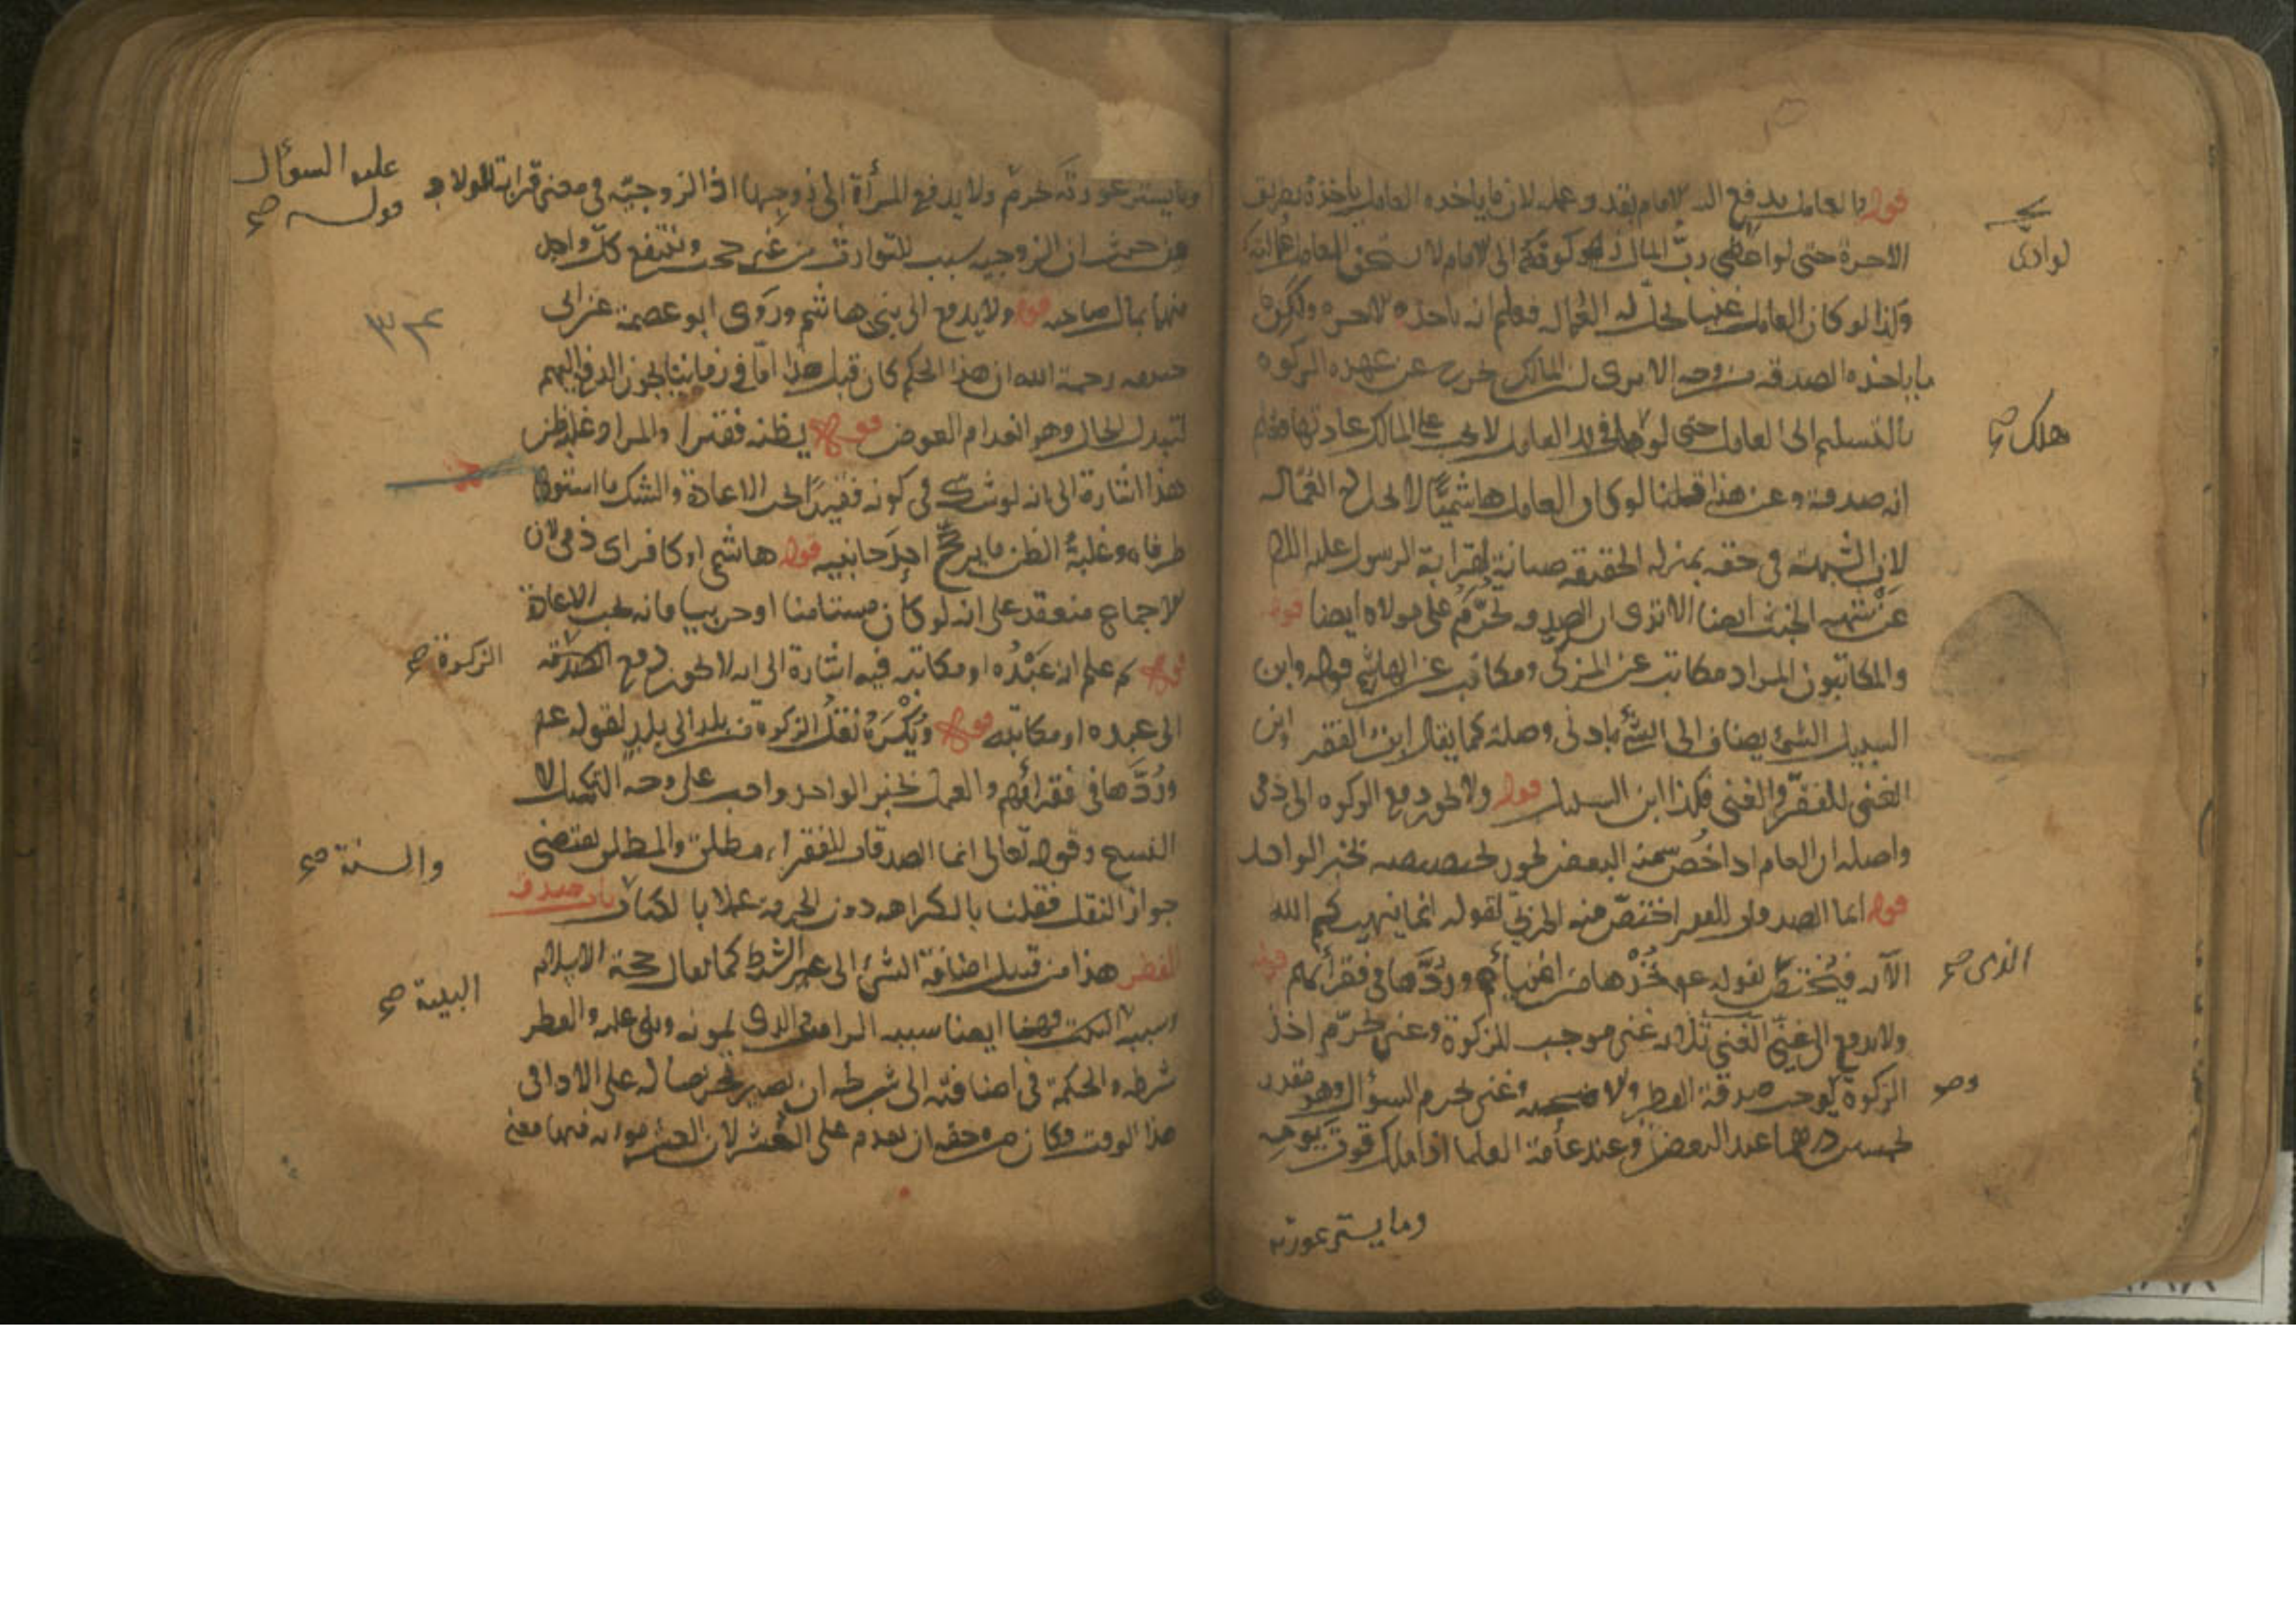 قوله والعامل يدفع اليه الامام بقدر عمله لان ما ياخذه العامل ياخذه بطريق
الاجرة حتى لو اعطى رب المال زكوته الى الامام لا يستحق العامل عمالته
وكذا لو كان العامل غنيا يحل له العمالة فعلم انه ياخذه لاجره ولكن
ما ياخذه الصدقة من وجه الا يرى ان المالك خرج عن عهدة الزكوة
بالتسليم الى العامل حتى لو في يد العامل لا يجب على المالك عادتها فعلم
انه صدقة وعن هذا قلنا لو كان العامل هاشميا لا يحل له العمالة
لان الشبهة في حقه بمنزلة الحقيقة صيانة لقرابة الرسول عليه السلام
عن شبهة الخبث ايضا الا ترى ان الصدقة تحرم على مولاه ايضا قوله
والمكاتبون المراد مكاتب غير المزكى ومكاتب غير الهاشمي قوله وابن
السبيل الشئ يضاف الى الشئ بادنى وصلة كما يقال ابن الفقر وابن
الغنى للفقير والغنى فكذا ابن السبيل قوله ولا يجوز دفع الزكوة الى ذمي
واصله ان العام اذا خص منه البعض يجوز تخصيصه بخبر الواحد
قوله انما الصدقات للفقراء اختص منه الحربي لقوله انما ينهيكم الله
الآية فيختص لقوله عم خذها من اغنيائهم وردها في فقرائهم قوله
ولا يدفع الى غني الغني ثلاثة غنى موجب للزكوة وغنى يحرم اخذ
الزكوة يوجب صدقة الفطر والاضحية وغنى يحرم السؤال وهو مقدر
بخمسين درهما عند البعض وعند عامة العلما اذا ملك قوت يومه
وما يستر عورته
لو ادى
هلك
الذمى صح
وهو
وما يستر عورته يحرم ولا يدفع المرأة الى زوجها اذ الزوجية في معنى قرابة الولاد
من حيث ان الزوجية سبب للتوارث من غير حجب وينتفع كل واحد
منهما بمال صاحبه قوله ولا يدفع الى بنى هاشم وروى ابو عصمة عن ابى
حنيفة رحمة الله ان هذا الحكم كان قبل هذا اما في زماننا يجوز الدفع اليهم
لتبدل الحال وهو انعدام العوض قوله يظنه فقيرا والمراد غلبة ظن
هذا اشارة الى انه لو شك في كونه فقيرا يجب الاعادة والشك ما استوى
طرفاه وغلبة الظن ما يرجح احد جانبيه قوله هاشمي او كافر اى ذمي لان
الاجماع منعقد على انه لو كان مستامنا او حربيا فانه يجب الاعادة
قوله ثم علم انه عبده او مكاتبه فيه اشارة الى انه لا يجوز دفع الصدقة
الى عبده او مكاتبه قوله ويكره نقل الزكوة من بلد الى بلد لقوله عم
وردها في فقرائهم والعمل بخبر الواحد واجب على وجه التكميل لا
النسخ وقوله تعالى انما الصدقات للفقراء مطلق والمطلق يقتضى
جواز النقل فقلنا بالكراهه دون الحرمة عملا بالكتاب باب صدقة
الفطر هذا من قبيل اضافة الشئ الى الشرط كما يقال حجة الاسلام
وسببه البيت وههنا ايضا سببه الراس الذى يمونه ويلى عليه والفطر
شرطه والحكمة في اضافته الى شرطه ان يصير تحريضا له على الادا في
هذا الوقت وكان من حقه ان يقدم على العشر لان العشر مؤنه فيها معنى
عليه السؤال
قوله صح
الزكوة صح
والسنة صح
البيت صح